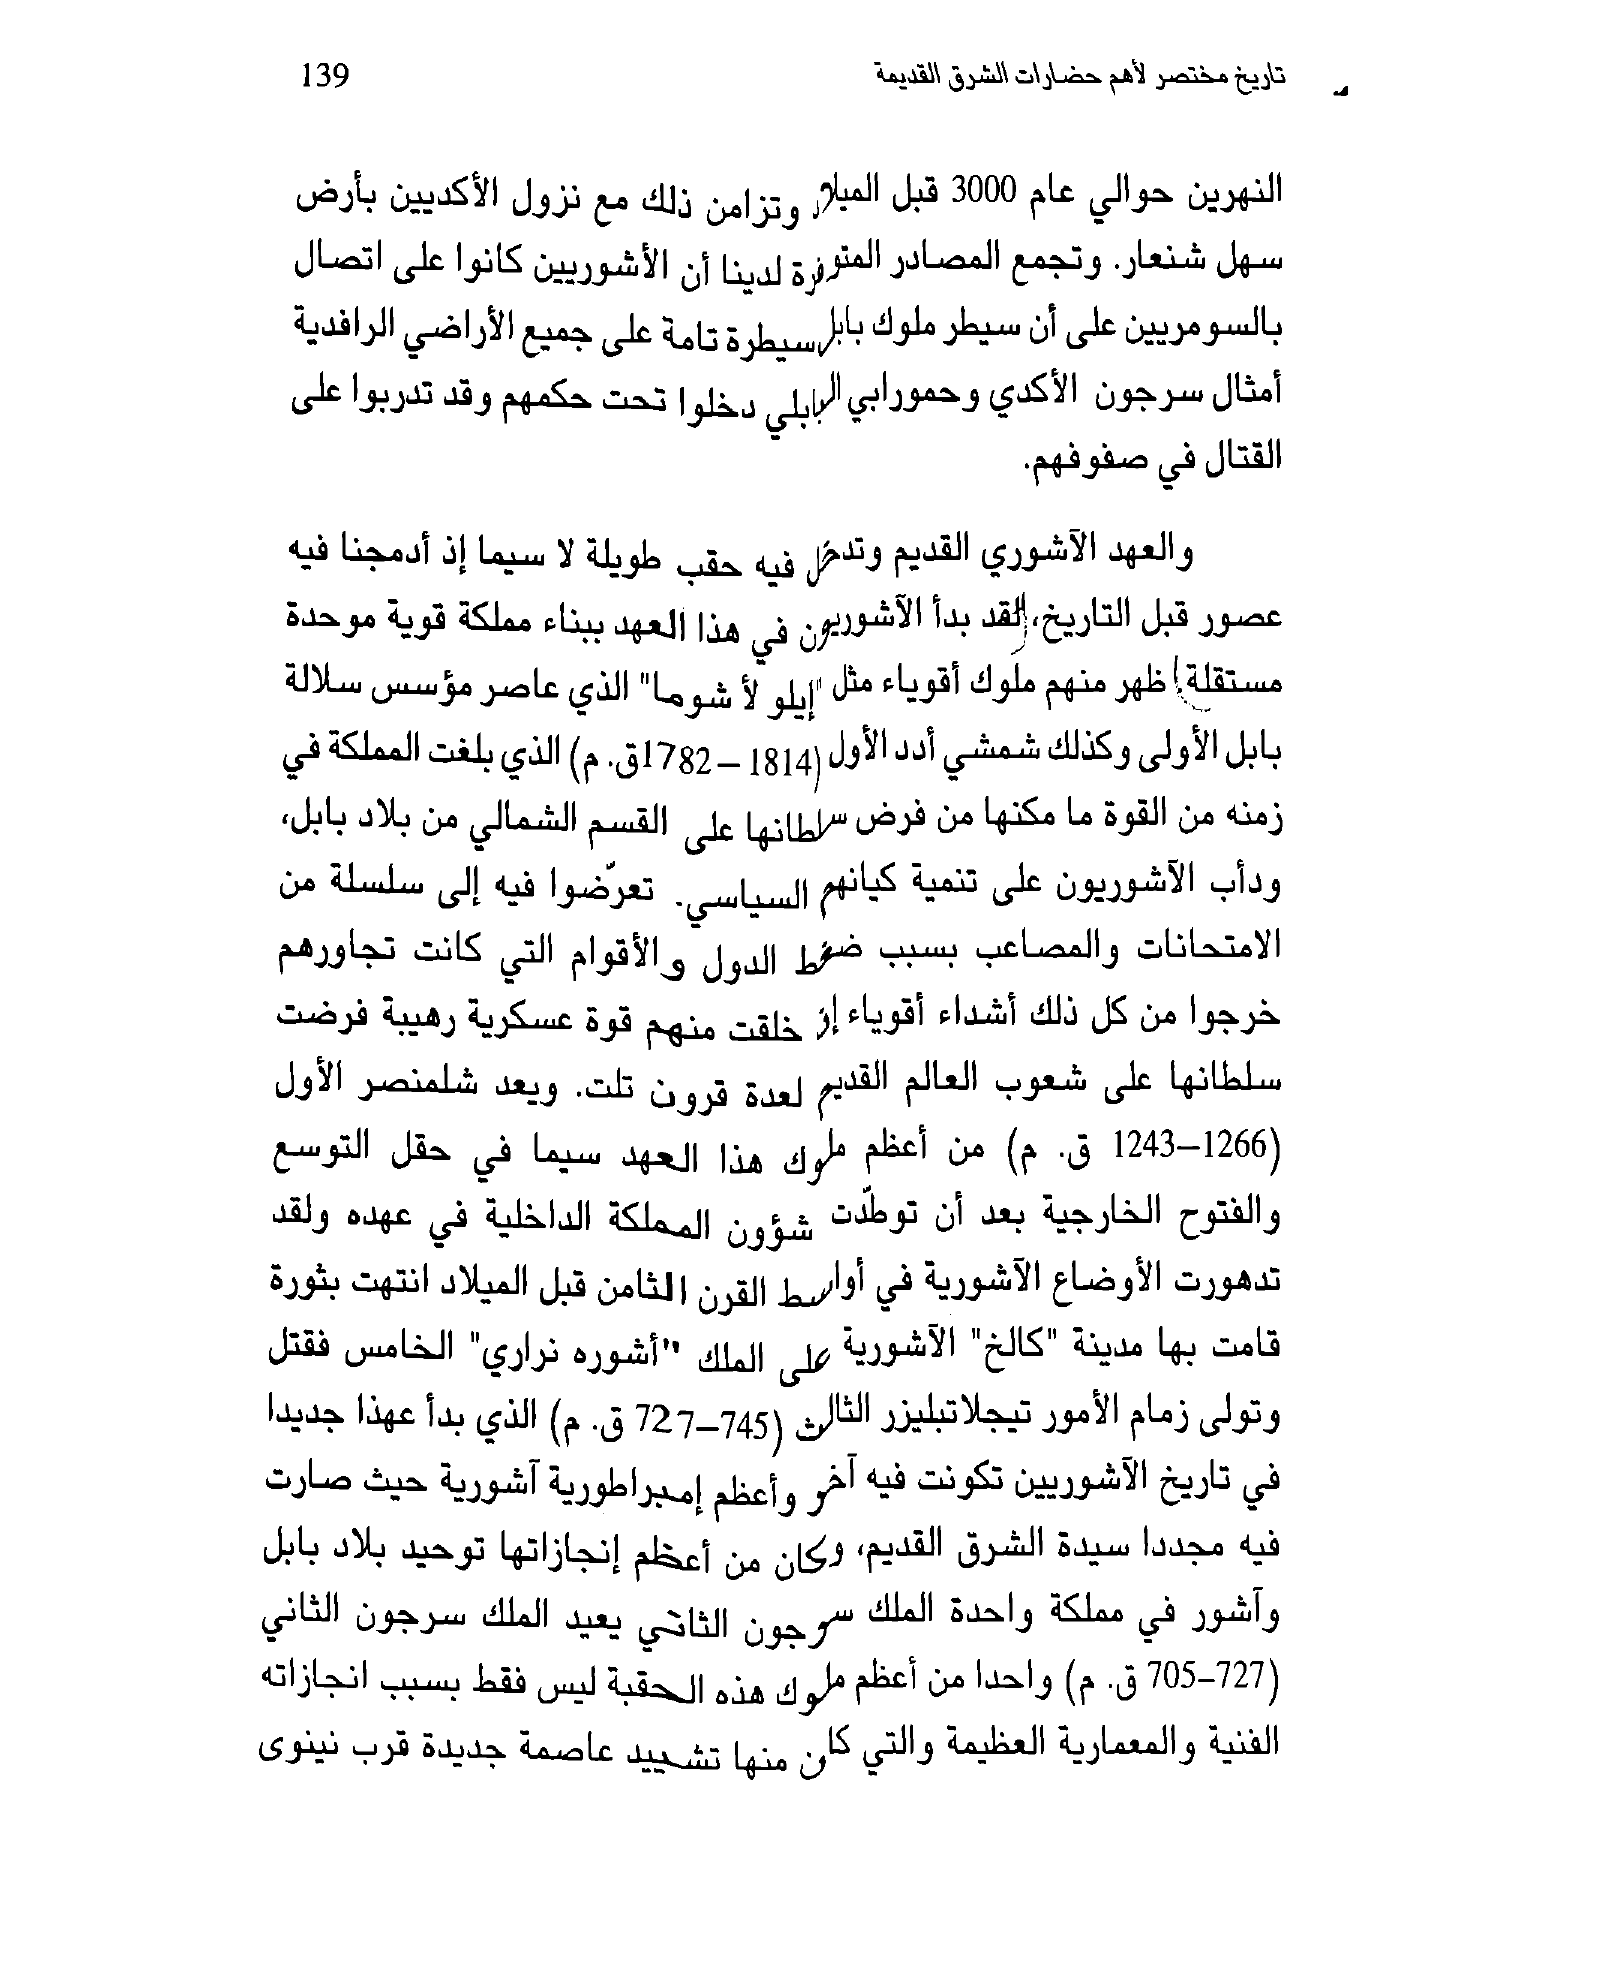 تاريخ مختصر لأهم حضارات الشرق القديمة 139
النهرين حوالي عام 3000 قبل الميلاد وتزامن ذلك مع نزول الأكديين بأرض
سهل شنعار. وتجمع المصادر المتوفرة لدينا أن الأشوريين كانوا على اتصال
بالسومريين على أن سيطر ملوك بابل سيطرة تامة على جميع الأراضي الرافدية
أمثال سرجون الأكدي وحمورابي البابلي دخلوا تحت حكمهم وقد تدربوا على
القتال في صفوفهم.
والعهد الآشوري القديم وتدخل فيه حقب طويلة لا سيما إذ أدمجنا فيه
عصور قبل التاريخ، لقد بدأ الآشوريون في هذا العهد ببناء مملكة قوية موحدة
مستقلة ظهر منهم ملوك أقوياء مثل "إيلو لأ شوما" الذي عاصر مؤسس سلالة
بابل الأولى وكذلك شمشي أدد الأول (1814 – 1782ق. م) الذي بلغت المملكة في
زمنه من القوة ما مكنها من فرض سلطانها على القسم الشمالي من بلاد بابل،
ودأب الآشوريون على تنمية كيانهم السياسي. تعرّضوا فيه إلى سلسلة من
الامتحانات والمصاعب بسبب ضغط الدول والأقوام التي كانت تجاورهم
خرجوا من كل ذلك أشداء أقوياء إذ خلقت منهم قوة عسكرية رهيبة فرضت
سلطانها على شعوب العالم القديم لعدة قرون تلت. ويعد شلمنصر الأول
(1266–1243 ق. م) من أعظم ملوك هذا العهد سيما في حقل التوسع
والفتوح الخارجية بعد أن توطدّت شؤون المملكة الداخلية في عهده ولقد
تدهورت الأوضاع الآشورية في أواسط القرن الثامن قبل الميلاد انتهت بثورة
قامت بها مدينة "كالخ" الآشورية على الملك "أشوره نراري" الخامس فقتل
وتولى زمام الأمور تيجلاتبليزر الثالث (745–727 ق. م) الذي بدأ عهذا جديدا
في تاريخ الآشوريين تكونت فيه آخر وأعظم إمبراطورية آشورية حيث صارت
فيه مجددا سيدة الشرق القديم، وكان من أعظم إنجازاتها توحيد بلاد بابل
وآشور في مملكة واحدة الملك سرجون الثاني يعيد الملك سرجون الثاني
(727–705 ق. م) واحدا من أعظم ملوك هذه الحقبة ليس فقط بسبب انجازاته
الفنية والمعمارية العظيمة والتي كان منها تشييد عاصمة جديدة قرب نينوى